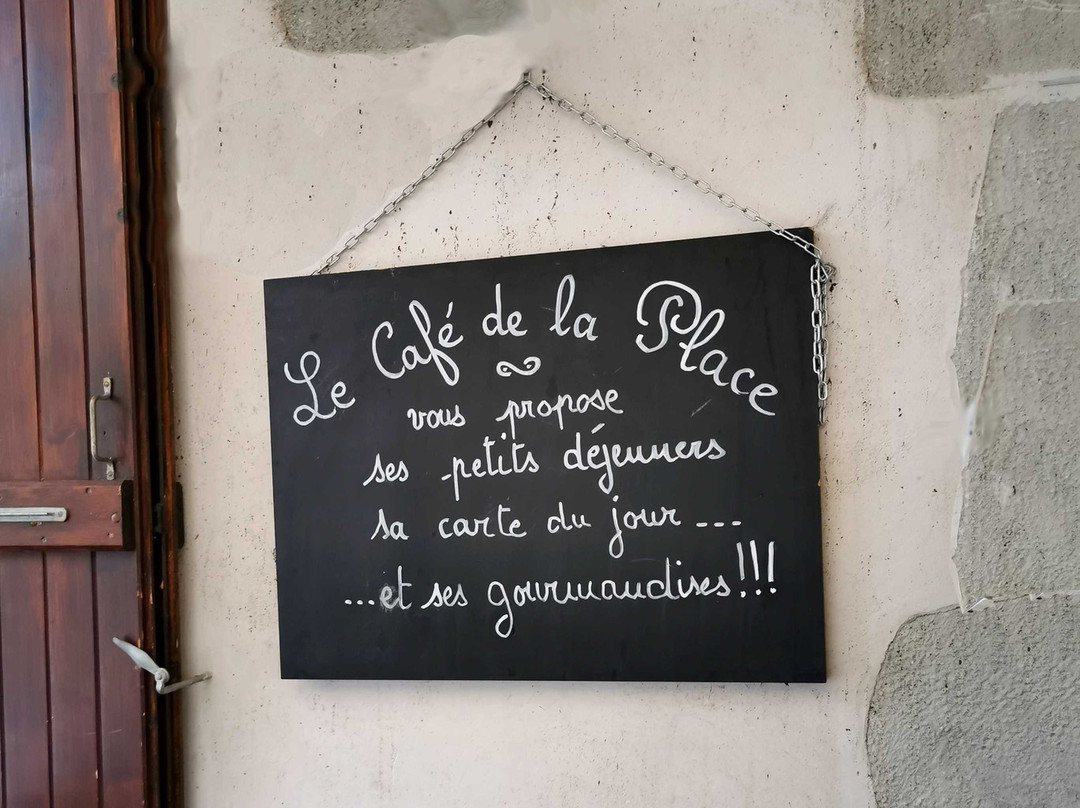 Le Café de la Place
vous propose
ses petits déjeuners
sa carte du jour ---
...et ses gourmandises!!!